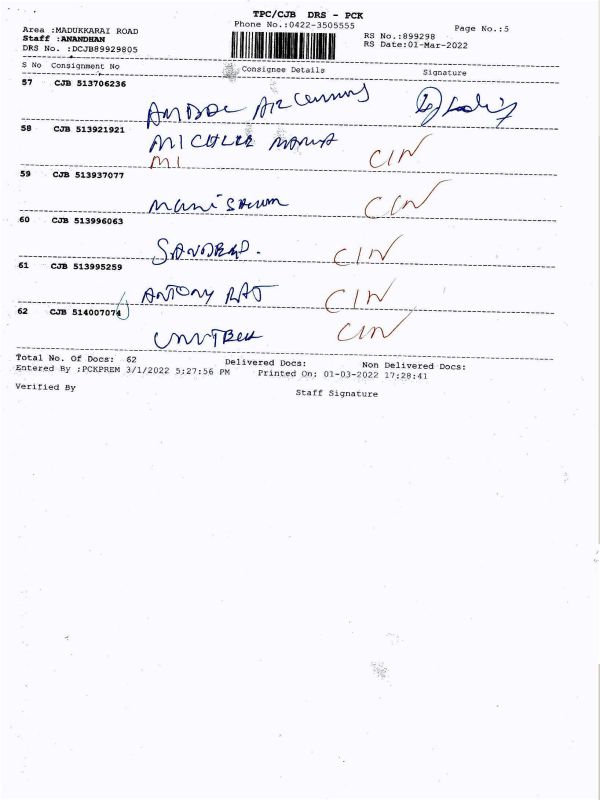 TPC/CJB DRS - PCK
Phone No.:0422-3505555
Page No.:5
Area :MADUKKARAI ROAD
Staff :ANANDHAN
DRS No. :DCJB89929805
RS No.:899298
RS Date:01-Mar-2022
S No Consignment No Consignee Details Signature
57 CJB 513706236
58 CJB 513921921
MI CIN
59 CJB 513937077
CIN
60 CJB 513996063
CIN
61 CJB 513995259
ANTONY RAJ CIN
62 CJB 514007074
CIN
Total No. Of Docs: 62 Delivered Docs: Non Delivered Docs:
Entered By :PCKPREM 3/1/2022 5:27:56 PM Printed On: 01-03-2022 17:28:41
Verified By Staff Signature